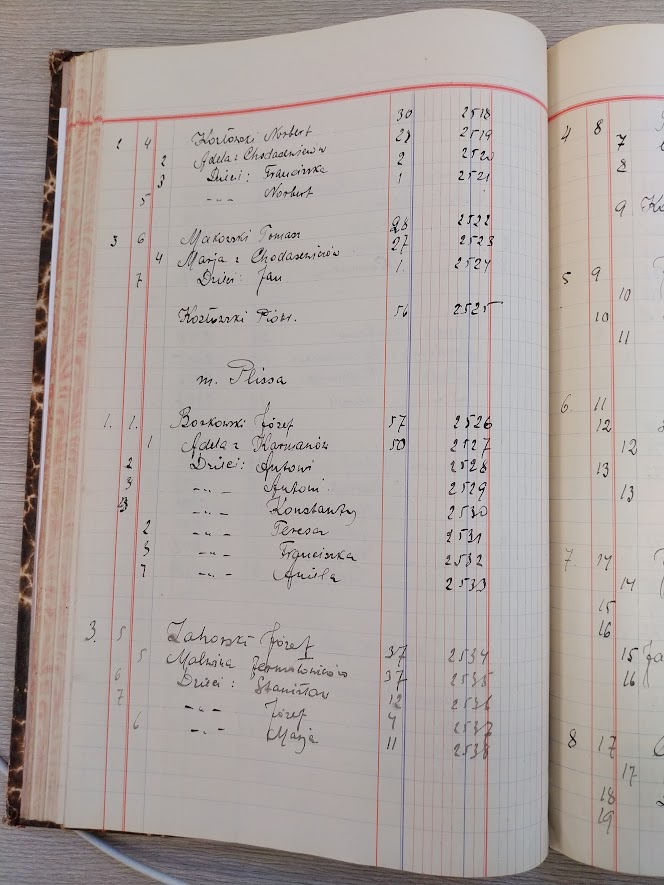 2 4 Kozłowski Norbert 30 2518
2 Adela z Chodasewiczów 28 2519
3 Dzieci: Franciszka 2 2520
5 -"- Norbert 1 2521
3 6 Makowski Tomasz 28 2522
4 Marja z Chodasewiczów 27 2523
7 Dzieci: Jan 1. 2524
Kozłowski Piotr. 56 2525
m. Plissa
1. 1. Borkowski Józef 57 2526
1 Adela z Karmanów 50 2527
2 Dzieci: Antoni 2528
3 -"- Antoni. 2529
-"- Konstanty 2530
2 -"- Teresa 2531
3 -"- Franciszka 2532
4 -"- Aniela 2533
3. 5 Zahorski Józef 37 2534
5 Malwina 37 2535
6 Dzieci: Stanisław 12 2536
7 -"- Józef 4 2537
6 -"- Marja 11 2538
4 8 7
8
9
5 9
10
10
11
6. 11
12
12
13
13
7. 14
14
15
16
15
16
8 17
17
18
19